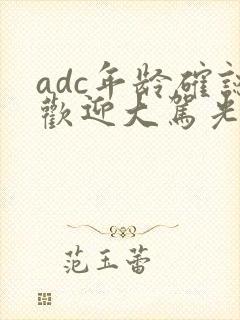 adc年龄確認
歡迎大駕光
范玉蕾